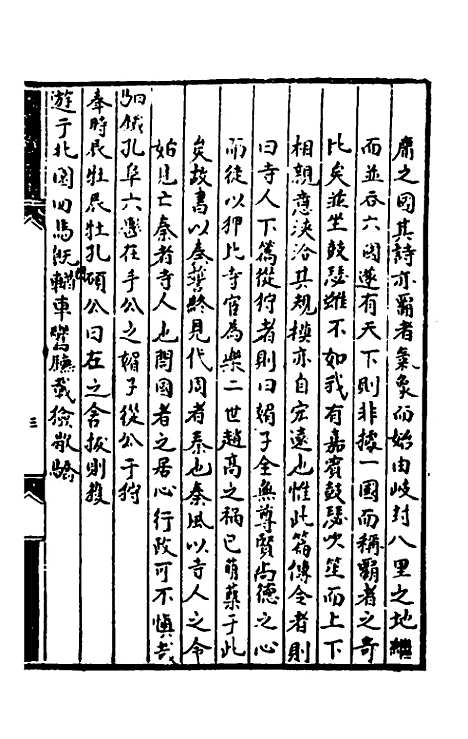 庸之國其詩亦霸者氣象而始由岐封八里之地繼
而並吞六國遂有天下則非據一國而稱霸者之奇
比矣並坐鼓瑟雖不如我有嘉賓鼓瑟吹笙而上下
相親意浹洽其規模亦自宏遠也惟此篇傳令者則
曰寺人下篇從狩者則曰媚子全無尊賢尚德之心
而徒以狎比寺官為樂二世趙高之禍已萌蘖于此
矣故書以秦誓終見代周者秦也秦風以寺人之令
始見亡秦者寺人也閱國者之居心行政可不慎哉
駟鐵孔阜六轡在手公之媚子從公于狩
奉時辰牡辰牡孔碩公曰左之舍拔則獲
遊于北園四馬既閑輶車鸞鑣載獫歇驕
三